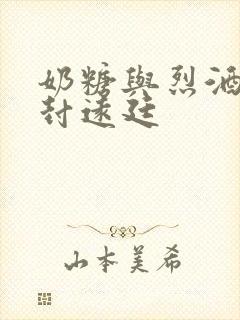 奶糖與烈酒
封遠廷
山本美希